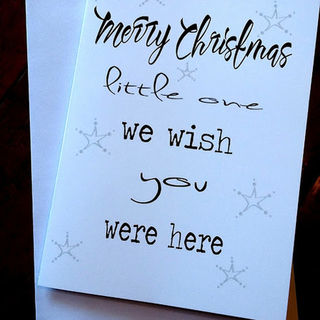 Merry Christmas
little one
we wish
you
were here